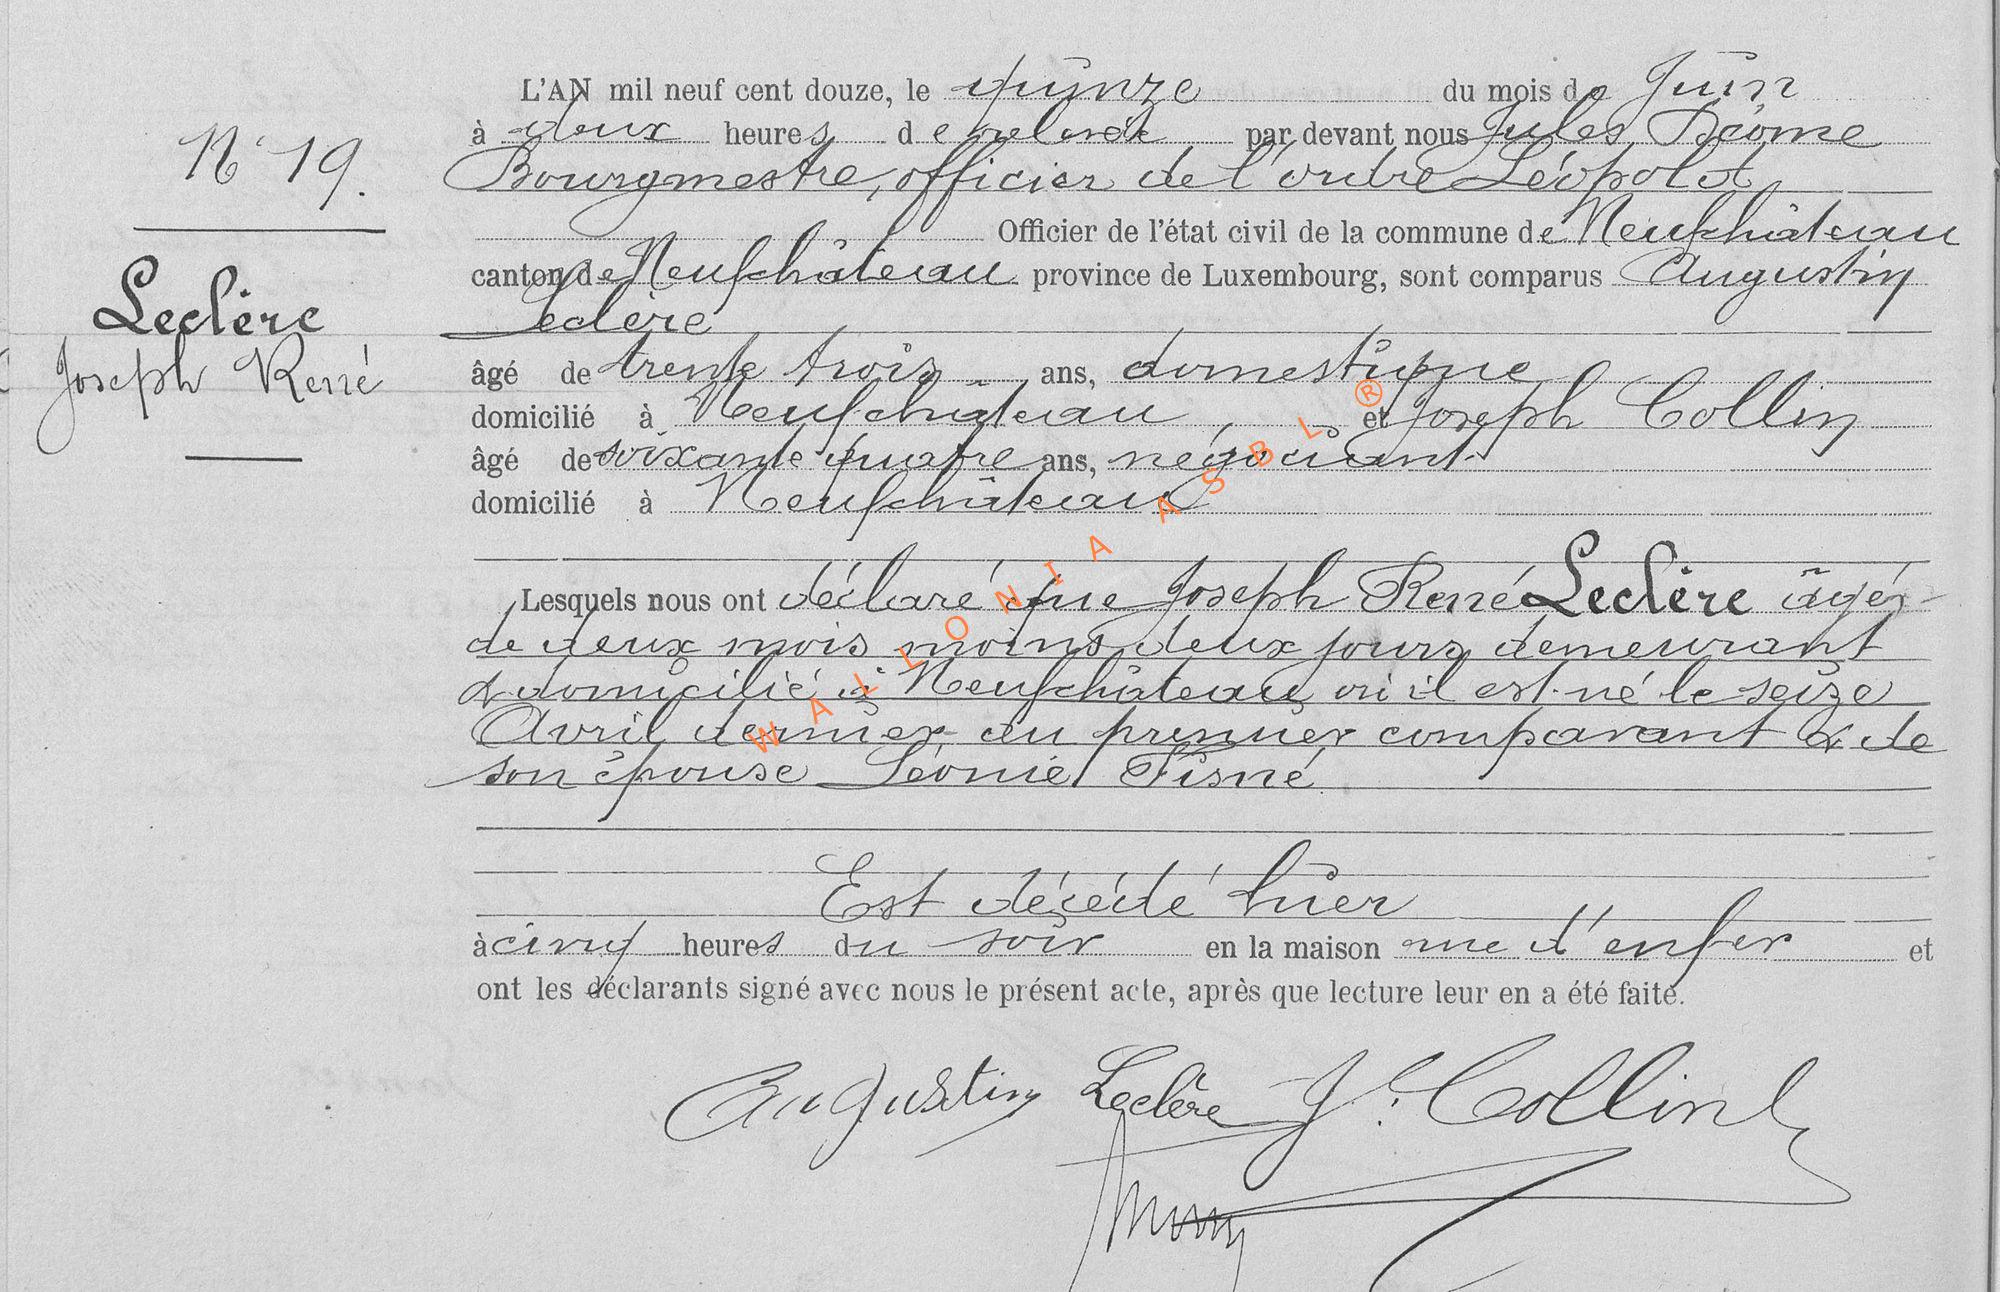 L'AN mil neuf cent douze, le quinze du mois de Juin
à deux heures de relevée par devant nous Jules
N° 19.
Bourgmestre, officier de l'ordre Léopold
Officier de l'état civil de la commune de Neufchâteau
canton de Neufchâteau province de Luxembourg, sont comparus Augustin
Leclère
Leclère
Joseph René
âgé de trente trois ans, domestique
domicilié à Neufchâteau et Joseph Collin
âgé de soixante quatre ans, négociant
domicilié à Neufchâteau
Lesquels nous ont déclaré que Joseph René Leclère âgé
de deux mois moins deux jours demeurant
& domicilié à Neufchâteau où il est né le seize
Avril dernier du premier comparant & de
son épouse Léonie Fisné
Est décédé hier
à cinq heures du soir en la maison rue d'enfer et
ont les déclarants signé avec nous le présent acte, après que lecture leur en a été faite.
Augustin Leclère Jh Collin
WALLONIA ASBL ®